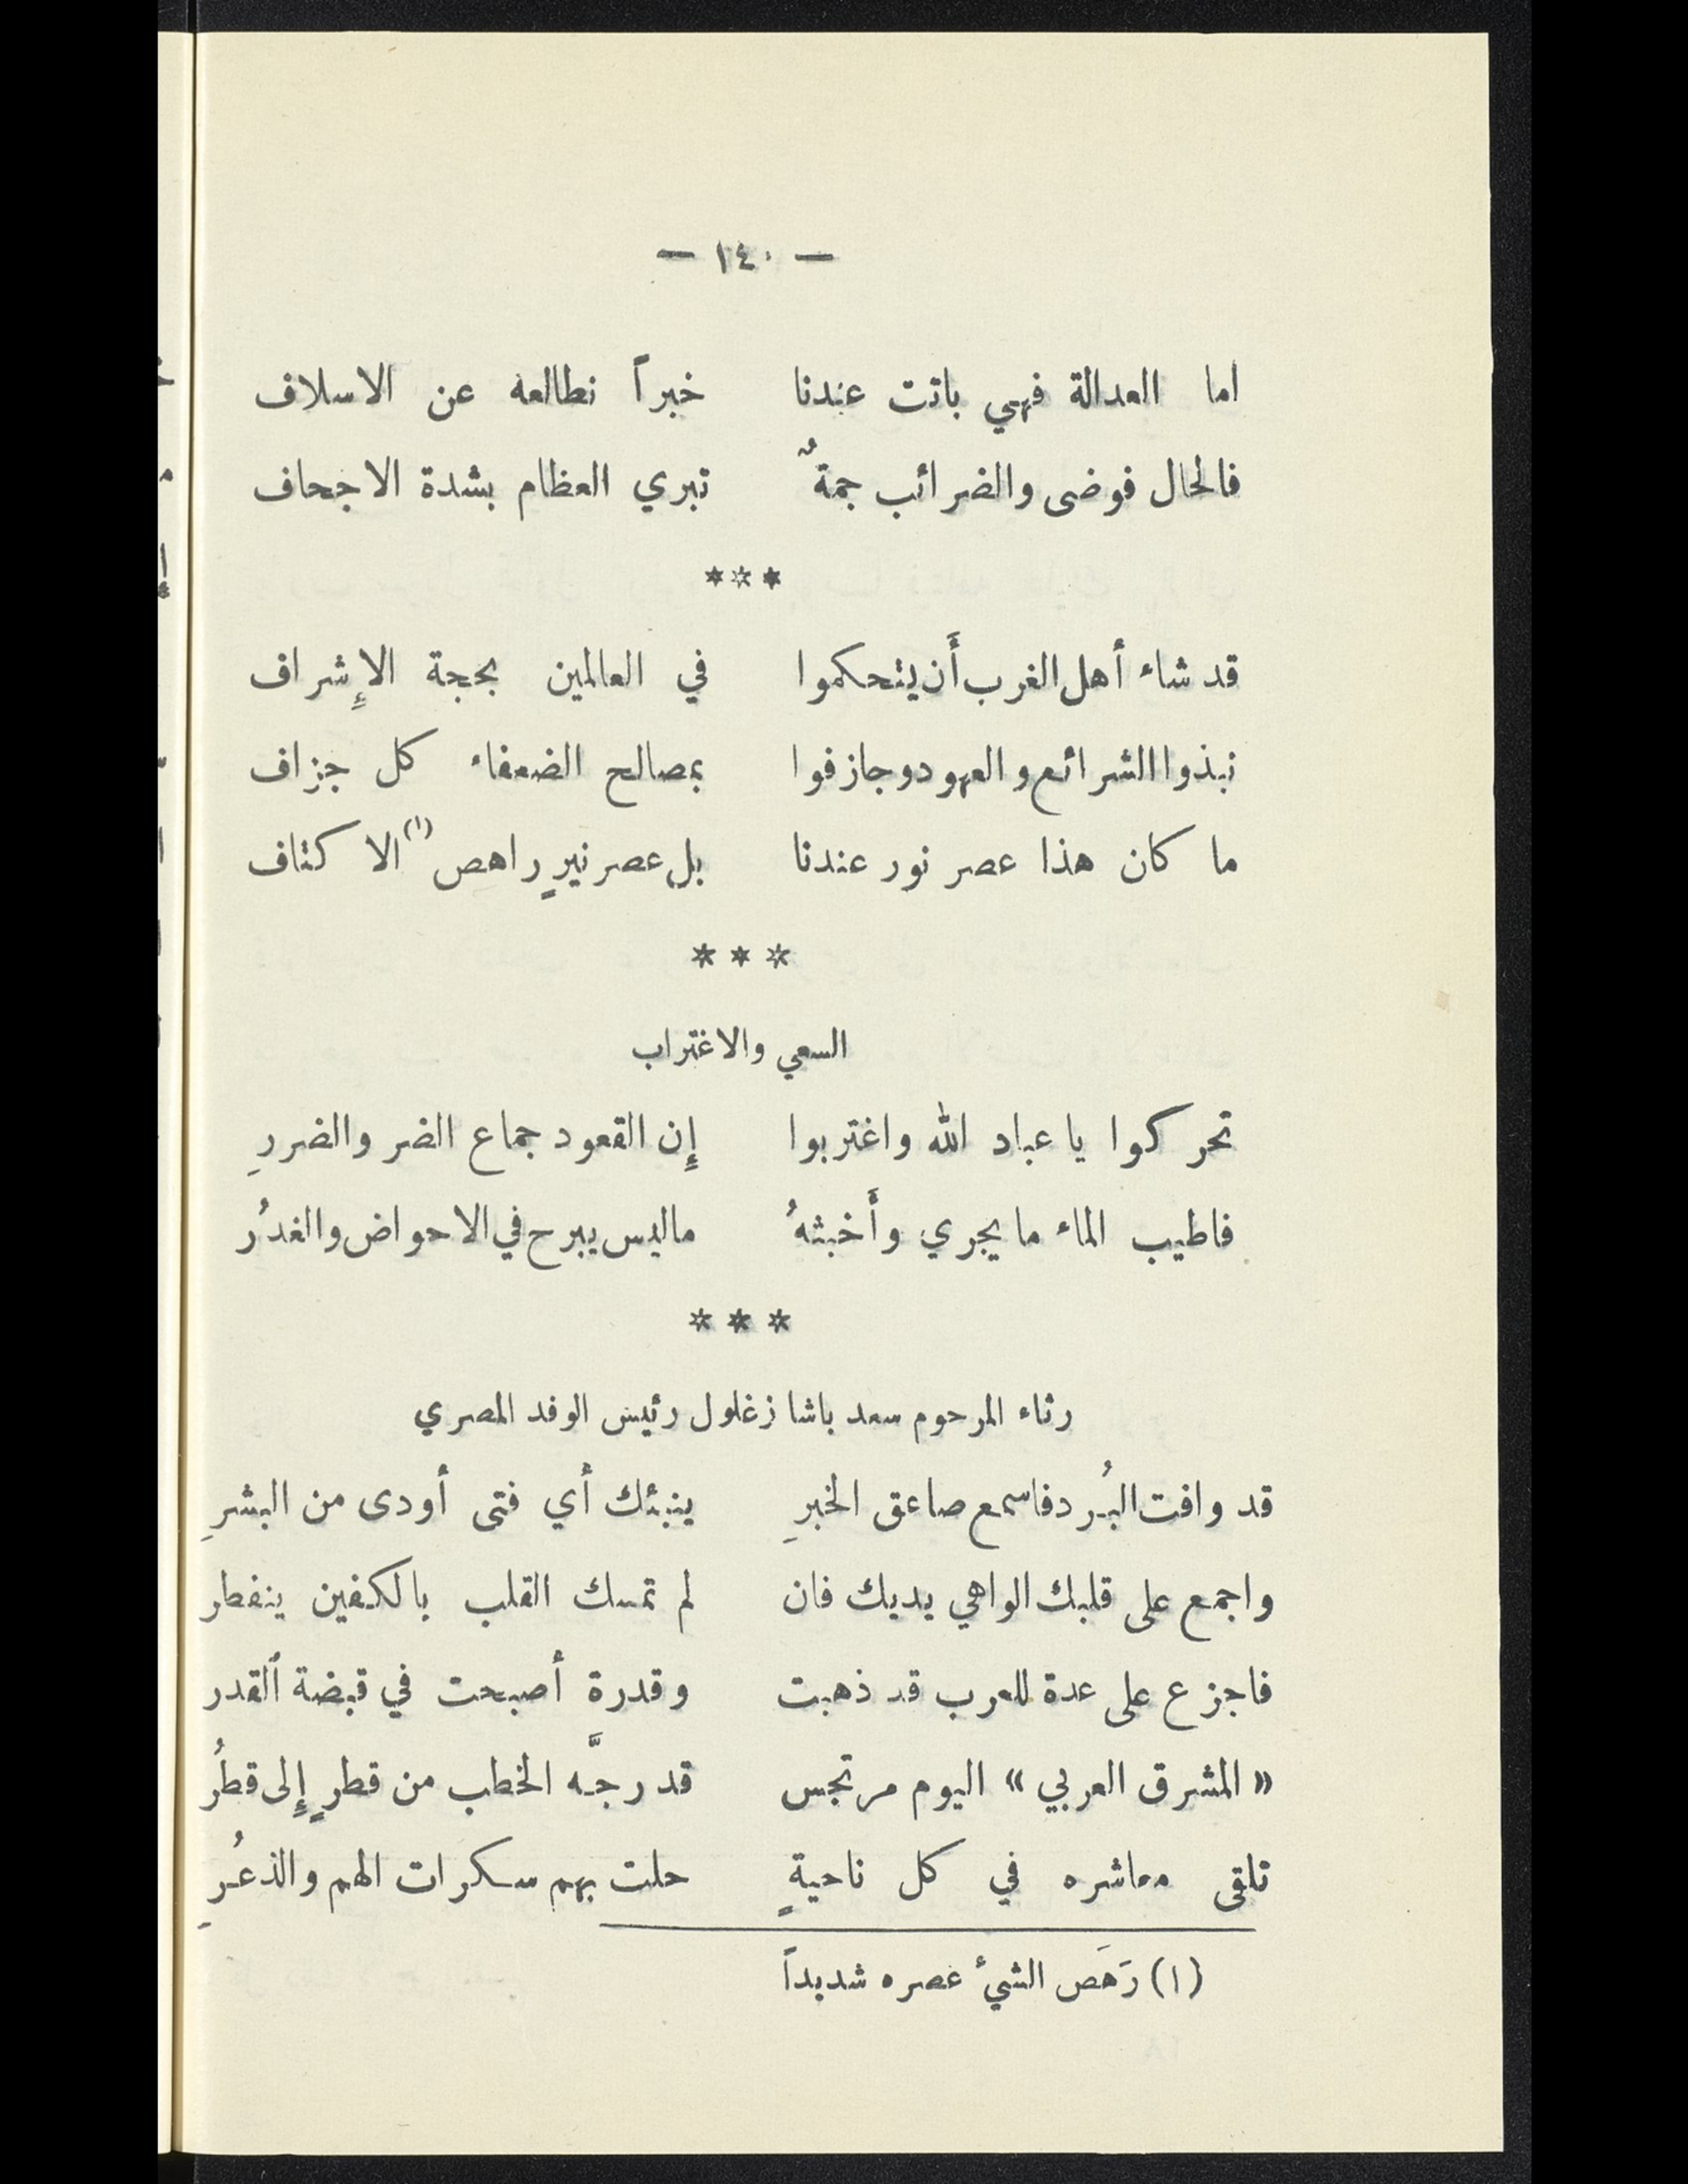 — ١٤٠ —
اما العدالة فهي باتت عندنا خبراً نطالعه عن الاسلاف
فالحال فوضى والضرائب جمةٌ تبري العظام بشدة الاجحاف
***
قد شاء أهل الغرب أَن يتحكموا في العالمين بحجة الإِشراف
نبذوا الشرائع والعهود وجازفوا بمصالح الضعفاء كل جزاف
ما كان هذا عصر نور عندنا بل عصر نيرٍ راهص (١) الاكتاف
* * *
السعي والاغتراب
تحركوا يا عباد الله واغتربوا إِن القعود جماع الضر والضررِ
فاطيب الماء ما يجري وأَخبثهُ ما ليس يبرح في الاحواض والغدُر
* * *
رثاء المرحوم سعد باشا زغلول رئيس الوفد المصري
قد وافت البُرد فاسمع صاعق الخبرِ ينبئك أي فتى أودى من البشرِ
واجمع على قلبك الواهي يديك فان لم تمسك القلب بالكفين ينفطر
فاجزع على عدة للعرب قد ذهبت وقدرة أصبحت في قبضة القدر
« المشرق العربي » اليوم مرتجس قد رجَّه الخطب من قطرٍ إِلى قطُر
تلقى معاشره في كل ناحيةٍ حلت بهم سكرات الهم والذعُرِ
(١) رَهَص الشيءُ عصره شديداً